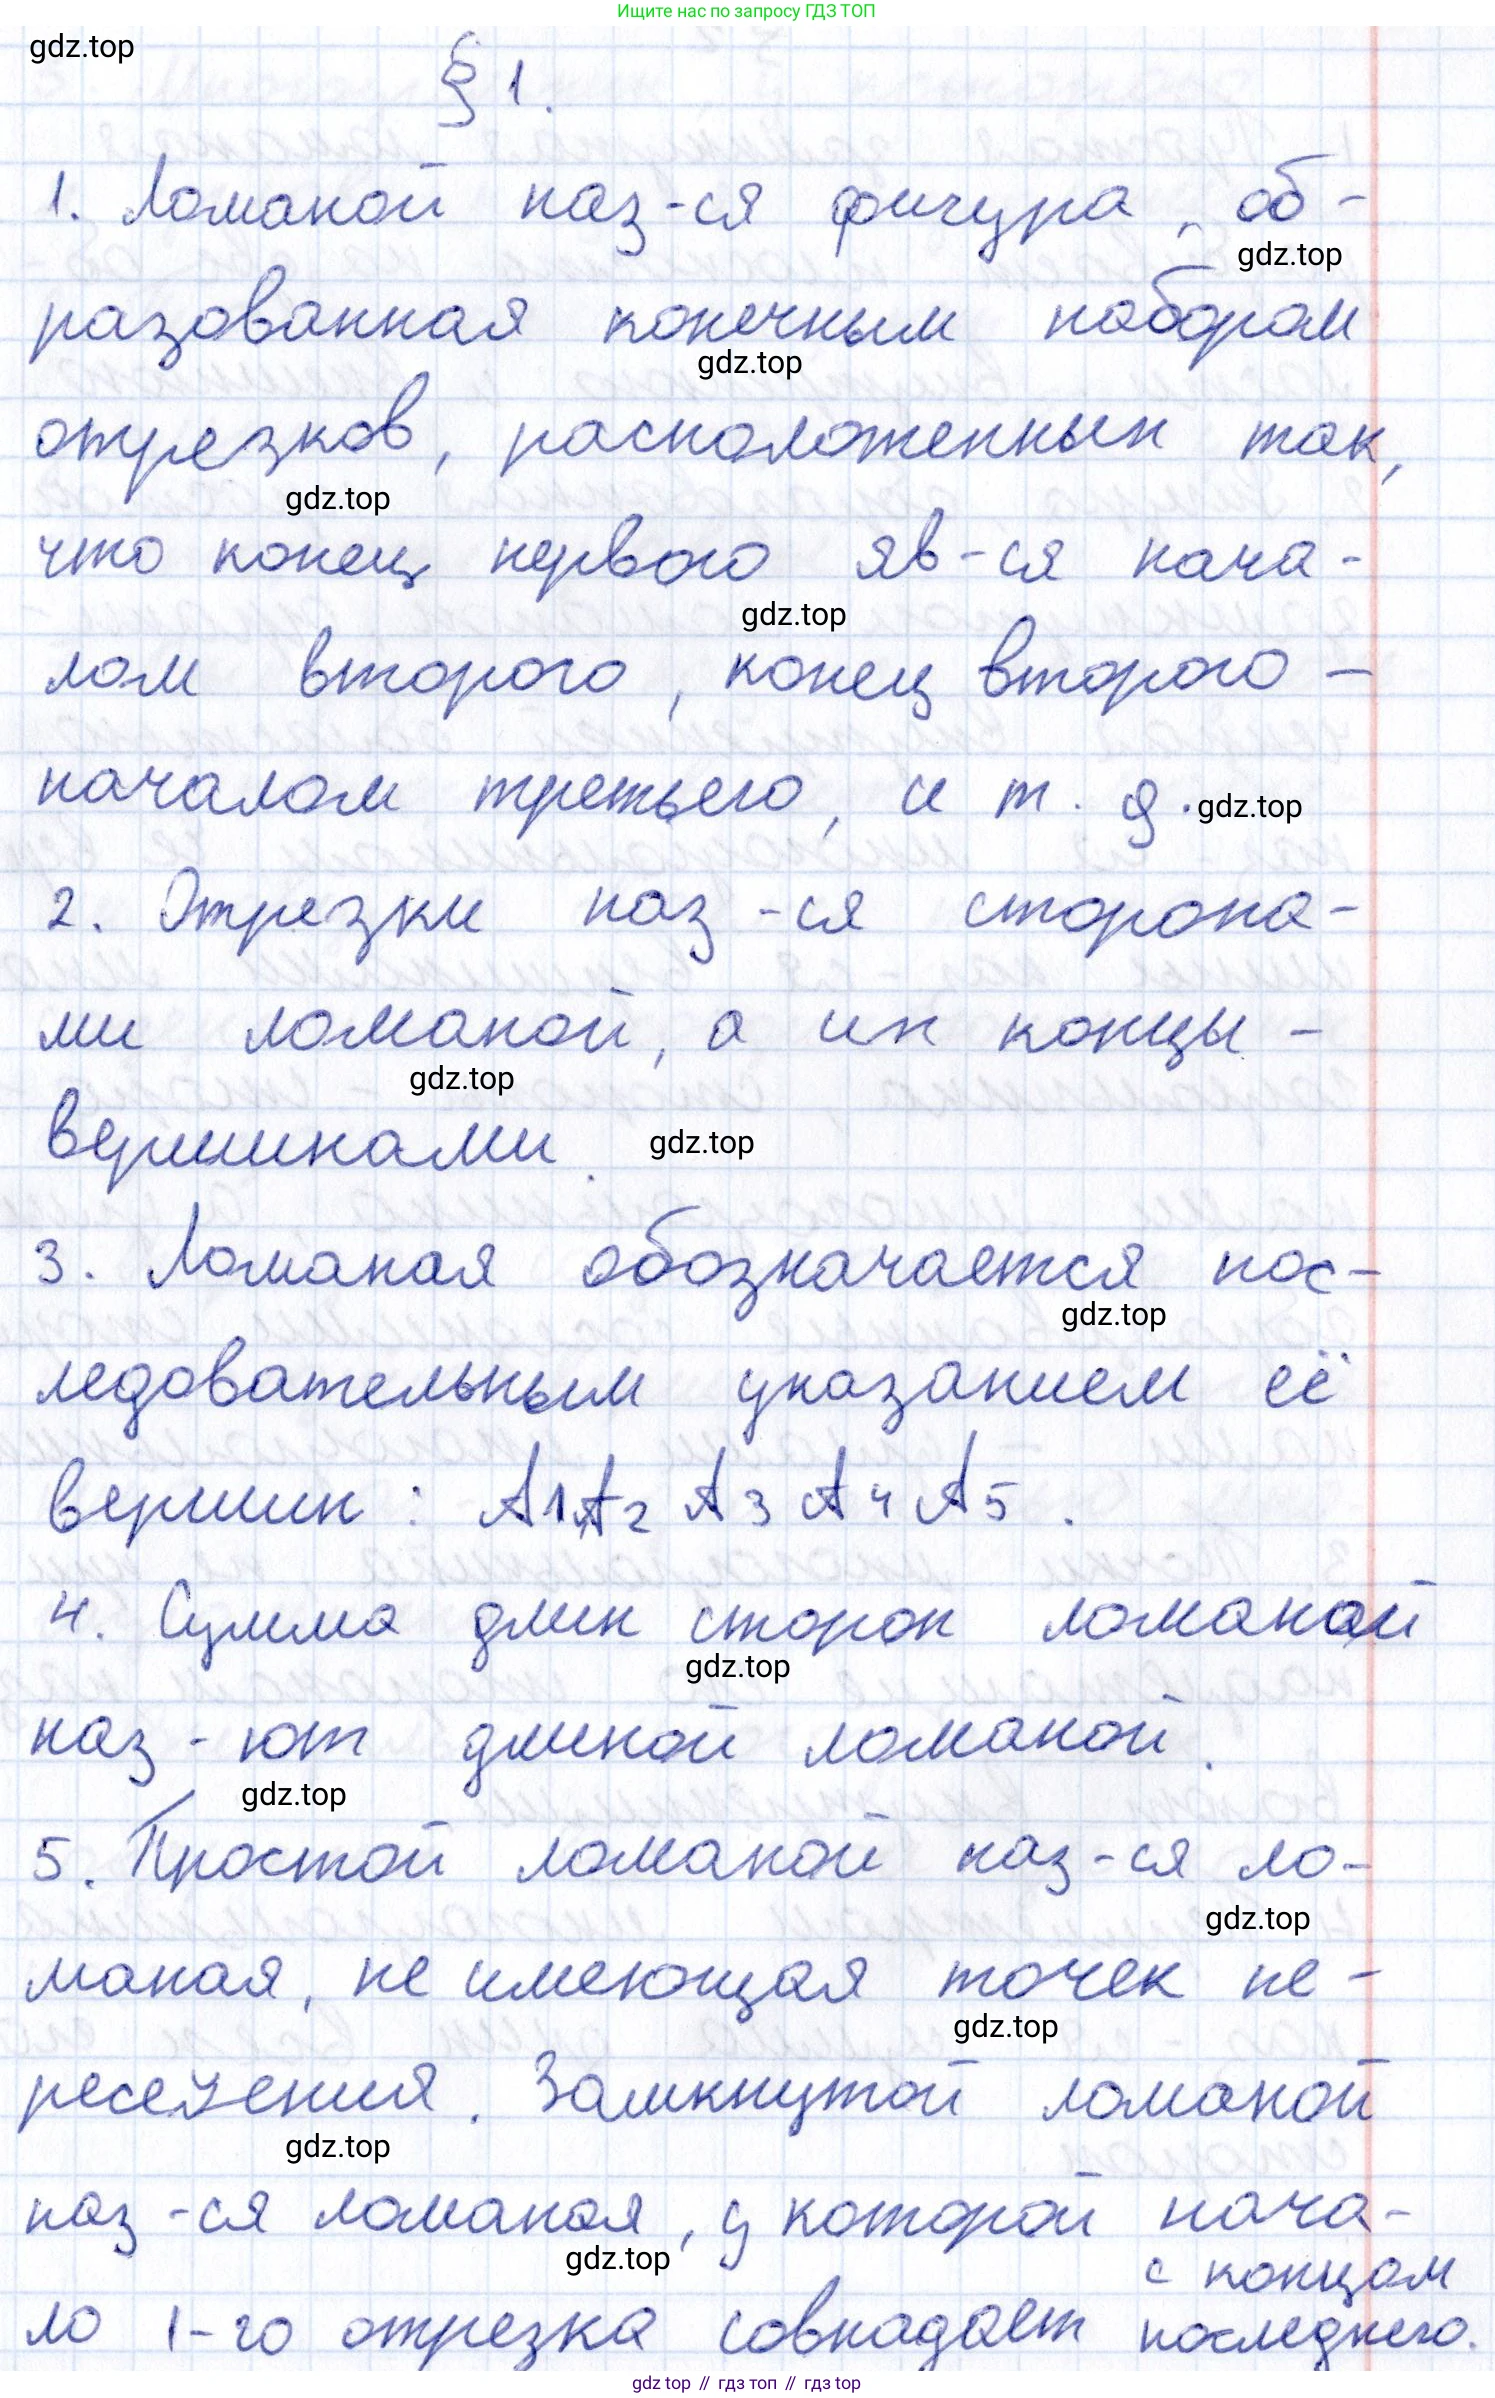 Ищите нас по запросу ГДЗ ТОП
gdz.top
§ 1.
1. Ломаной наз-ся фигура, об-
gdz.top
разованная конечным набором
gdz.top
отрезков, расположенных так,
gdz.top
что конец первого яв-ся нача-
gdz.top
лом второго, конец второго -
началом третьего, и т. д.
gdz.top
2. Отрезки наз-ся сторона-
ми ломаной, а их концы -
gdz.top
вершинами.
gdz.top
3. Ломаная обозначается пос-
gdz.top
ледовательным указанием её
вершин: A1A2A3A4A5.
4. Сумма длин сторон ломаной
gdz.top
наз-ют длиной ломаной.
gdz.top
5. Простой ломаной наз-ся ло-
gdz.top
маная, не имеющая точек пе-
gdz.top
ресечения. Замкнутой ломаной
gdz.top
наз-ся ломаная, у которой нача-
gdz.top
ло 1-го отрезка совпадает с концом
последнего.
gdz.top // гдз топ // гдз top